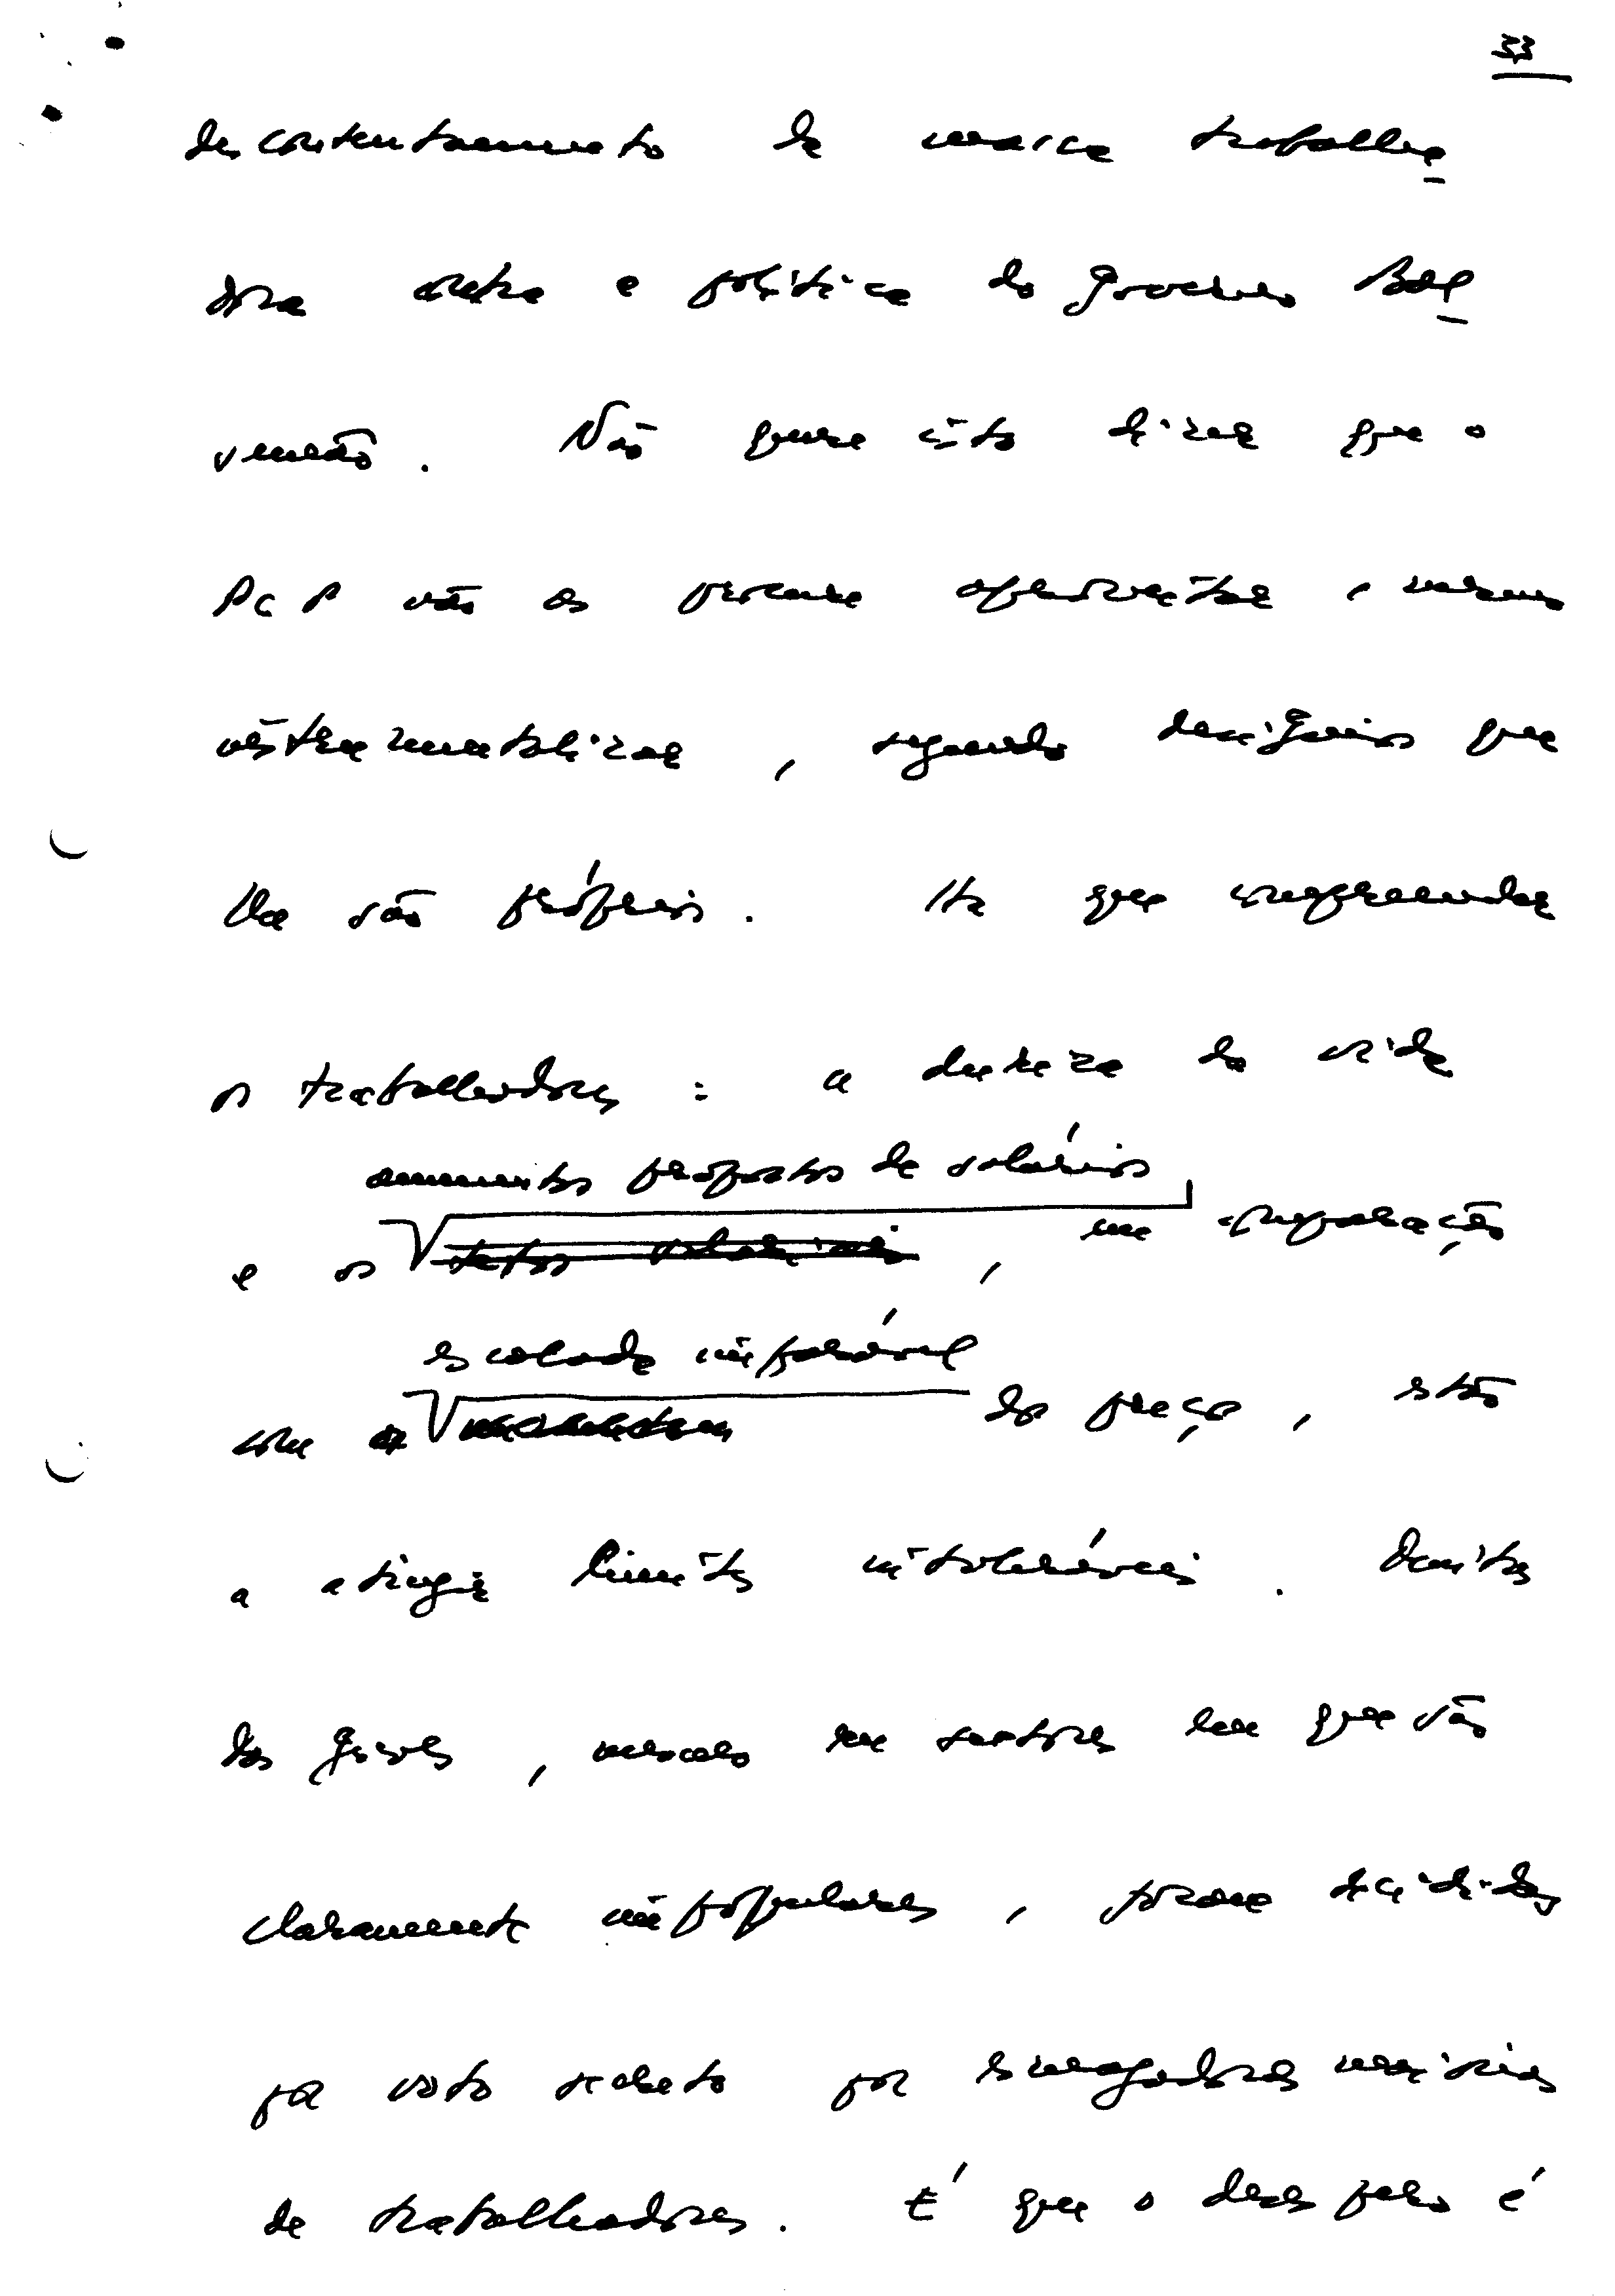 33
descontentamento da massa trabalha
dora contra a política do Governo Bal
semão. Não quer isto dizer que o
PCP não os procure aproveitar, mesmo
instrumentalizar, segundo desígnios que
lhe são próprios. Há que compreender
os trabalhadores: a dureza da vida
aumentos propostos de salários
e os tectos salariais, em comparação
escalada imparável
com a dos preços, estão
a atingir limites intoleráveis. Muitas
das greves, mesmo em sectores em que são
claramente impopulares, foram decididas
por voto secreto por esmagadoras maiorias
de trabalhadores. É que o desespero é